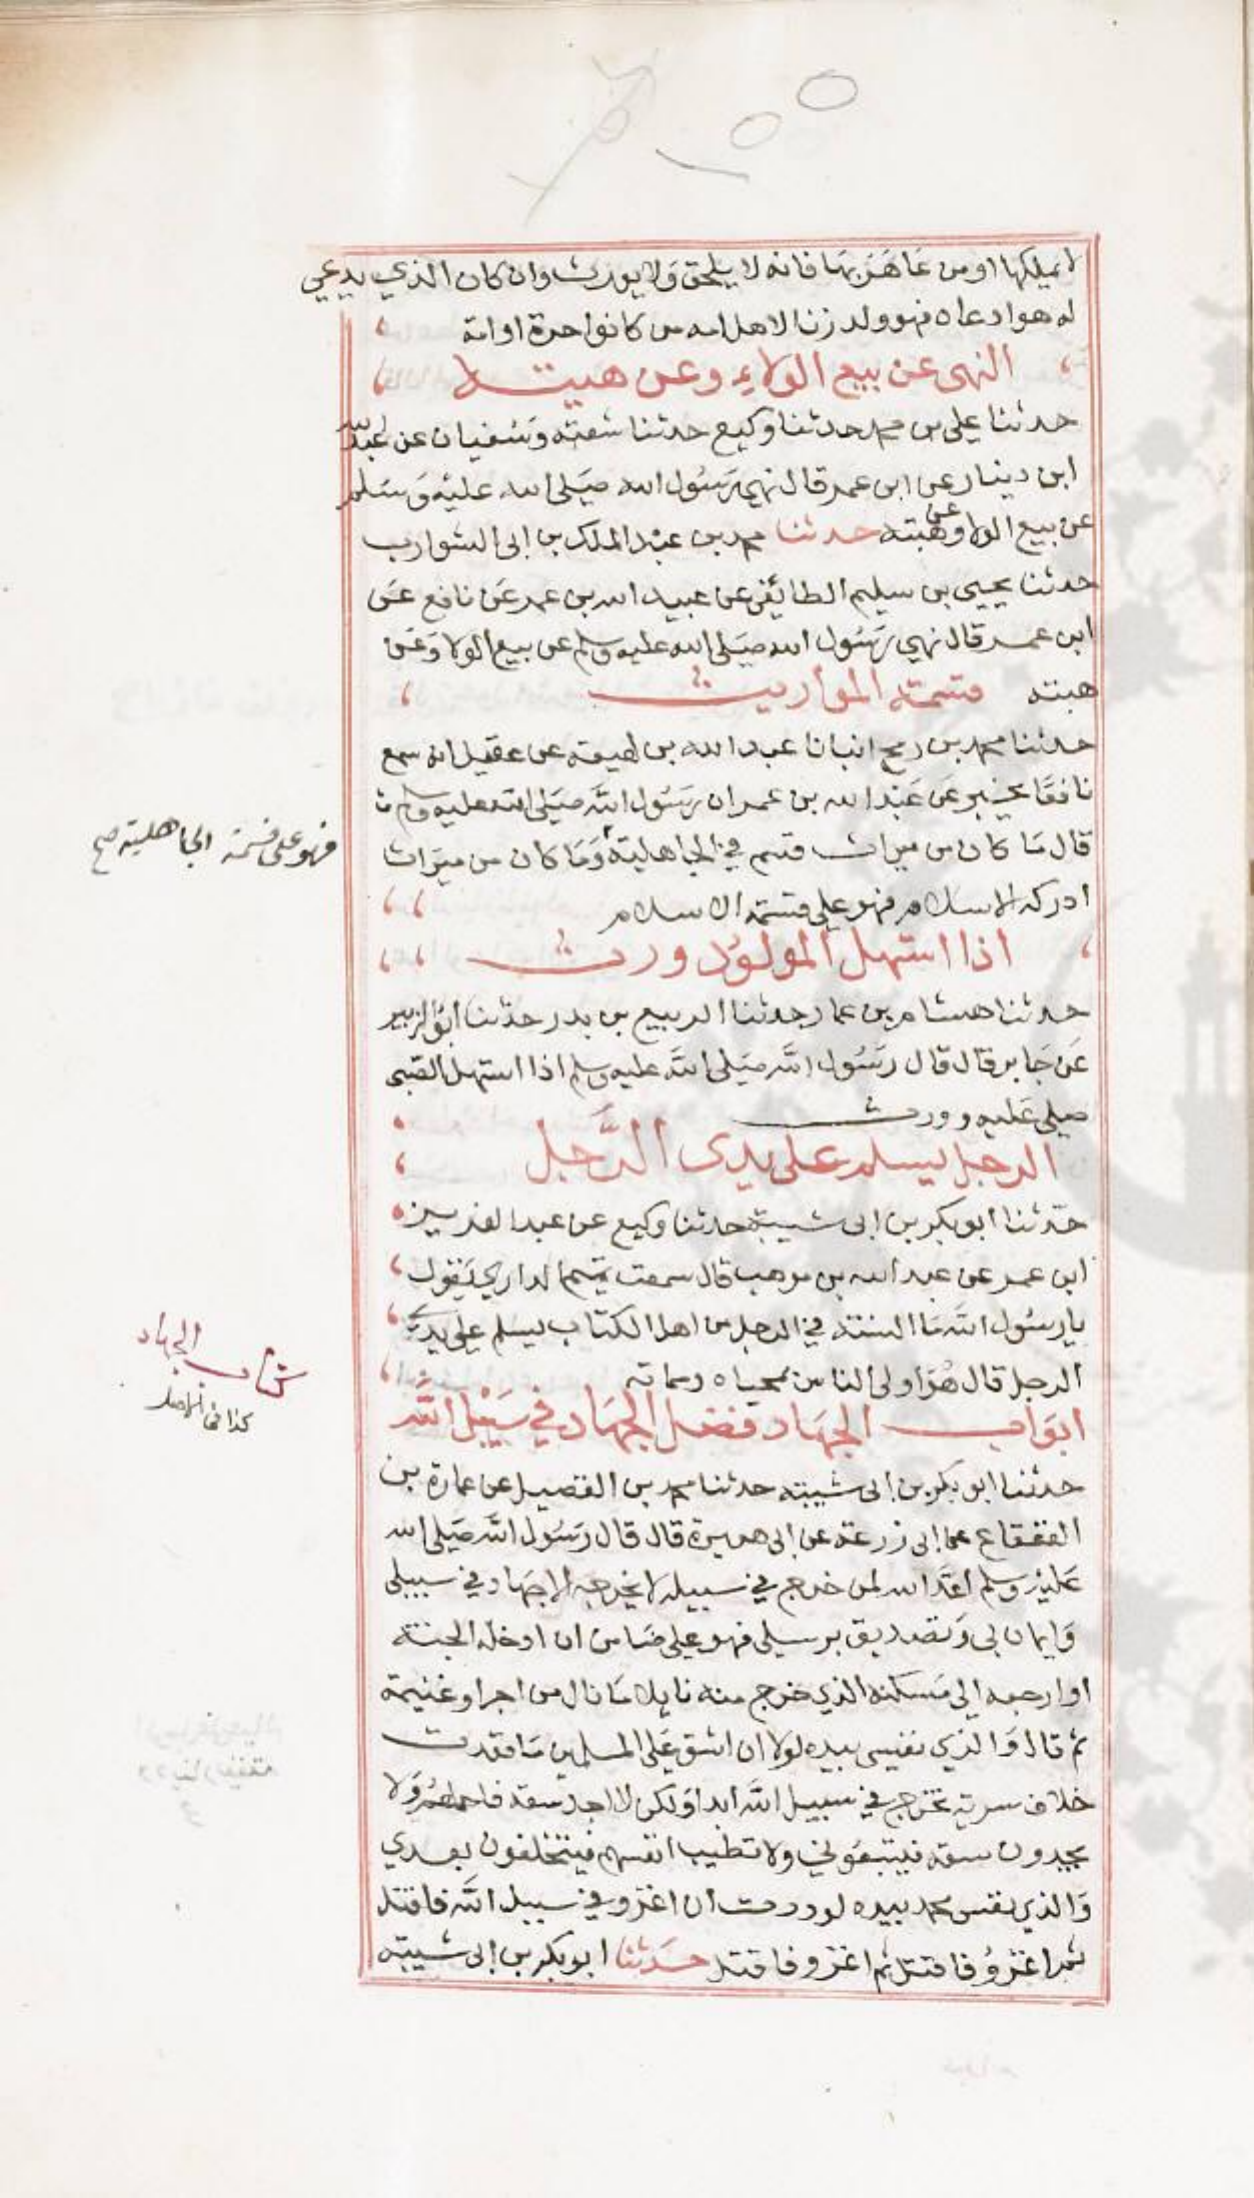 لا يملكها او من عَاهَرَ بهَا فانه لا يلحق وَلا يورث وان كان الذي يدعي
له هو ادعاه فهو ولد زنا لاهل امه من كانوا حرة او امة
النهى عن بيع الولاءِ وعن هبته
حدثنا علي بن محمد حدثنا وكيع حدثنا شعبة وَسُفيان عن عبد الله
ابن دينار عن ابن عمر قال نهي رَسُول الله صَلى الله عليْه وَسَلم
عن بيع الولا وعن هبته حدثنا محمد بن عبد الملك بن ابي الشوارب
حدثنا يحيى بن سليم الطائفي عن عبيد الله بن عمر عَن نافع عَن
ابن عمر قال نهي رَسُول الله صَلى الله عليه وسلم عن بيع الولا وَعَن
هبته قسمة المواريث
حدثنا محمد بن رمح انبانا عبد الله بن لهيعة عن عقيل انه سمع
نافعًا يخبر عَن عَبْد الله بن عمر ان رَسُول اللَّه صَلى الله عليه وسلم
قال مَا كان من ميراث قسم في الجاهلية وَمَا كان من ميَراث
فهو على قسمة الجاهلية صح
ادركه الاسلام فهو علي قسمة الاسلام
اذا استهل المولوُد ورث
حدثنا هشام بن عمار حدثنا الربيع بن بدر حدثنا ابوُ الزبير
عَن جَابر قال قال رَسُول اللَّه صَلى اللَّه عليه وسلم اذا استهل الصبى
صلي عَليه وورث
الرجل يسلم على يدى الرَّجل
حدّثنا ابو بكر بن ابى شيبة حدثنا وكيع عن عبد العزيز
ابن عمر عن عبد الله بن موهب قال سمعت تميما الداري يَقول
يا رسُول اللَّه مَا السنة في الرجل من اهل الكتاب يسلم علي يدي
الرجل قال هُوَ اولى الناس بمحياه ومماته
ابوَاب الجهَاد فضل الجهَاد في سَبيْل اللَّه
كتاب الجهاد
كذا في الاصل
حدثنا ابو بكر بن ابى شيبة حدثنا محمد بن الفضيل عن عمارة بن
القعقاع عن ابى زرعة عن ابى هريرة قال قال رَسُول اللَّه صَلى الله
عَليْه وسلم اعَدَّ الله لمن خرج في سبيله لا يخرجه الا جهَاد في سبيلى
وَايمان بي وَتصديق برسلي فهو علي ضَامن ان ادخله الجنة
او ارجعه الي مَسكنه الذي خرج منه نايلا مَا نال من اجر او غنيمة
ثم قال وَالذي نفسي بيده لولا ان اشق عَلي المسلمين مَا قعدت
خلاف سرية تخرج في سبيل اللَّه ابدا وَلكن لا اجد سعة فاحملهُم وَلا
يجدون سعة فيتبعُوني ولا تطيب انفسهم فيتخلفون بعدي
وَالذي نفس محمد بيده لوددت ان اغزو في سبيل اللَّه فاقتل
ثم اغزوُ فاقتل ثم اغزو فاقتل حدَثنا ابو بكر بن ابى شيبة